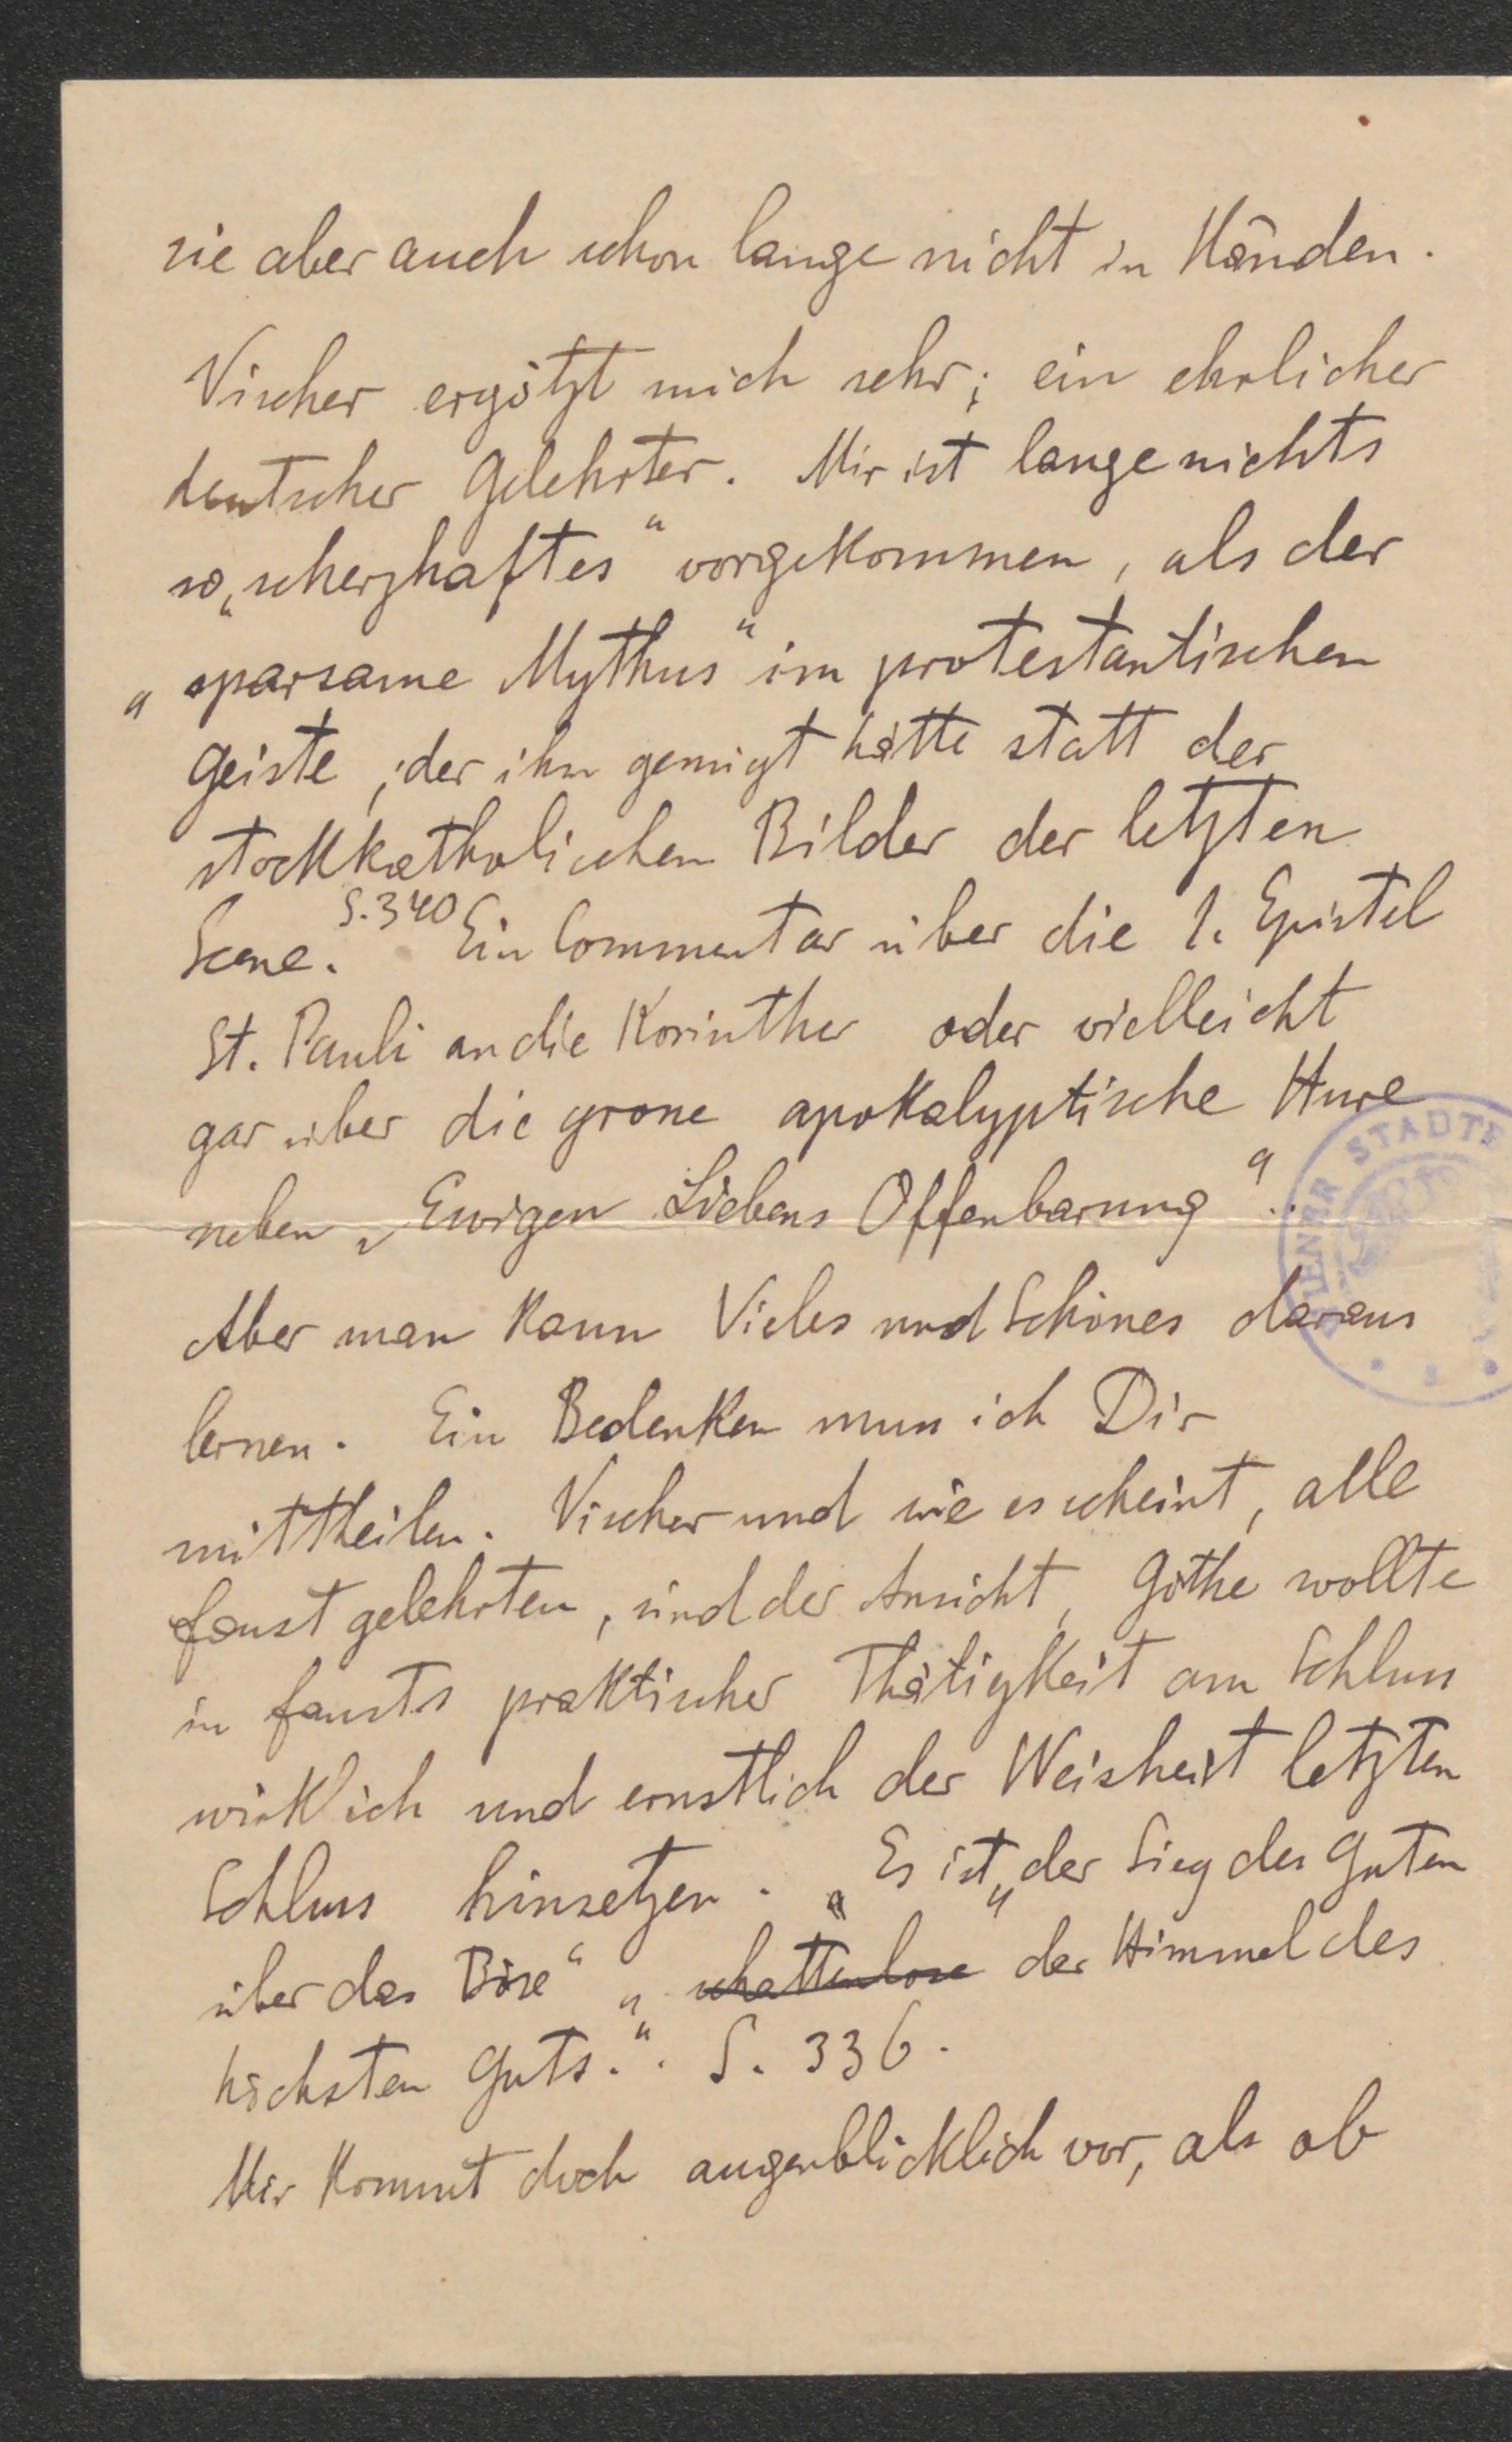 sie aber auch schon lange nicht in Händen.
Vischer ergötzt mich sehr; ein ehrlicher
deutscher Gelehrter. Mir ist lange nichts
so „scherzhaftes“ vorgekommen, als der
„sparsame Mythus“ im protestantischen
Geiste, der ihm genügt hätte statt der
stockkatholischen Bilder der letzten
Scene. S. 340 Ein Commentar über die 1. Epistel
St. Pauli an die Korinther oder vielleicht
gar über die grosse apokalyptische Hure
neben „Ewigen Liebens Offenbarung“..
Aber man kann Vieles und Schönes daraus
lernen. Ein Bedenken muss ich Dir
mittheilen. Vischer und wie es scheint, alle
Faustgelehrten, sind der Ansicht, Göthe wollte
in Fausts praktischer Thätigkeit am Schluss
wirklich und ernstlich der Weisheit letzten
Schluss hinsetzen. „Es ist „der Sieg des Guten
über das Böse“ „schattenlose der Himmel des
höchsten Guts.“. S. 336.
Mir kommt doch augenblicklich vor, als ob
WIENER STADT